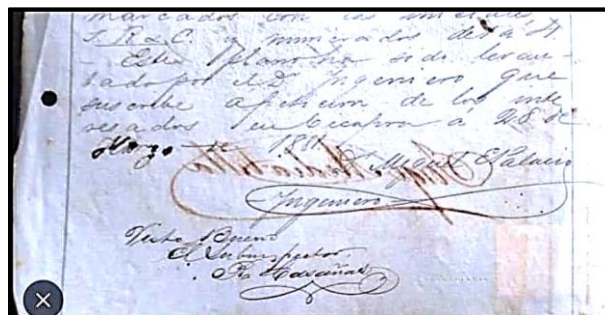 marcados con las iniciales
S. R. & C. y numerados de 1 a 4
Este plano ha sido levan
tado por el Dr Ingeniero que
suscribe a peticion de los inte
resados en Ticapra á 28 de
Marzo de 188
Miguel Palacio
Ingeniero
Visto Bueno
El Subinspector
R. Casañas